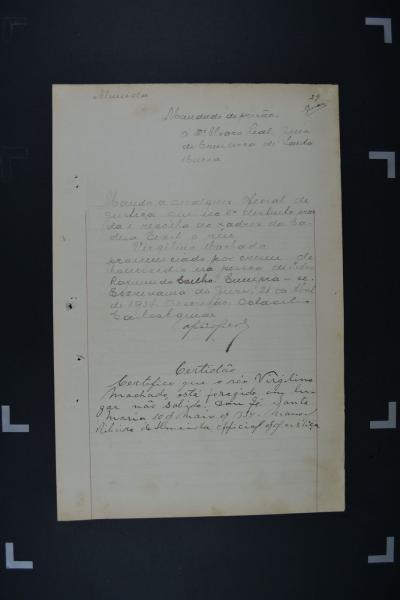 Almeida
29
Mandado de prisão.
O Dr Alvaro Leal, Juiz
de Comarca de Santa
Maria
Mando a qualquer oficial de
justiça que
da e recolha ao xadrez da Ca-
deia Civil o réu
Virgilino Machado
pronunciado por crime de
homicidio na pessoa de
Raymundo Coelho. Cumpra-se.
de 1934.
Certidão
Certifico que o réo Virgilino
Machado, está foragido em lu-
gar não sabido. dou fé. Santa
Maria 10 de Maio de 1934.
Ribeiro de Almeida official de justiça